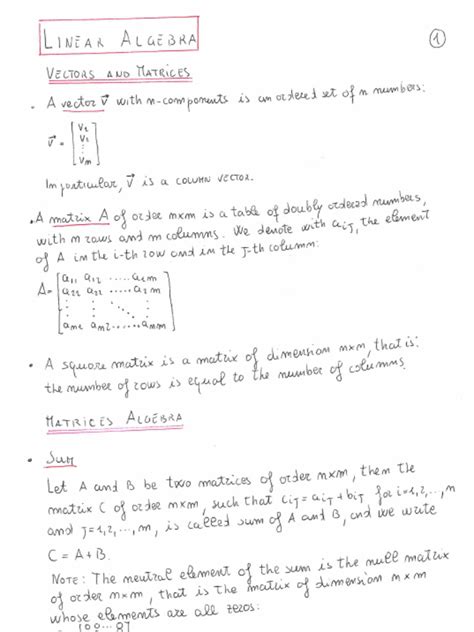 LINEAR ALGEBRA
1
VECTORS AND MATRICES
• A vector v⃗ with n-components is an ordered set of n numbers:
v⃗ = [v₁ v₂ ⋮ vₙ]
In particular, v⃗ is a COLUMN VECTOR.
• A matrix A of order m×n is a table of doubly ordered numbers,
with m rows and n columns. We denote with aᵢⱼ, the element
of A in the i-th row and in the j-th column:
A = [a₁₁ a₁₂ ..... a₁ₙ
a₂₁ a₂₂ ..... a₂ₙ
⋮ ⋮ ⋱ ⋮
aₘ₁ aₘ₂ ..... aₘₙ]
• A square matrix is a matrix of dimension n×n, that is:
the number of rows is equal to the number of columns.
MATRICES ALGEBRA
• SUM
Let A and B be two matrices of order m×n, then the
matrix C of order m×n, such that cᵢⱼ = aᵢⱼ + bᵢⱼ for i=1,2,...,m
and j=1,2,...,n, is called sum of A and B, and we write
C = A + B.
NOTE: The neutral element of the sum is the null matrix
of order m×n, that is the matrix of dimension m×n
whose elements are all zeros: